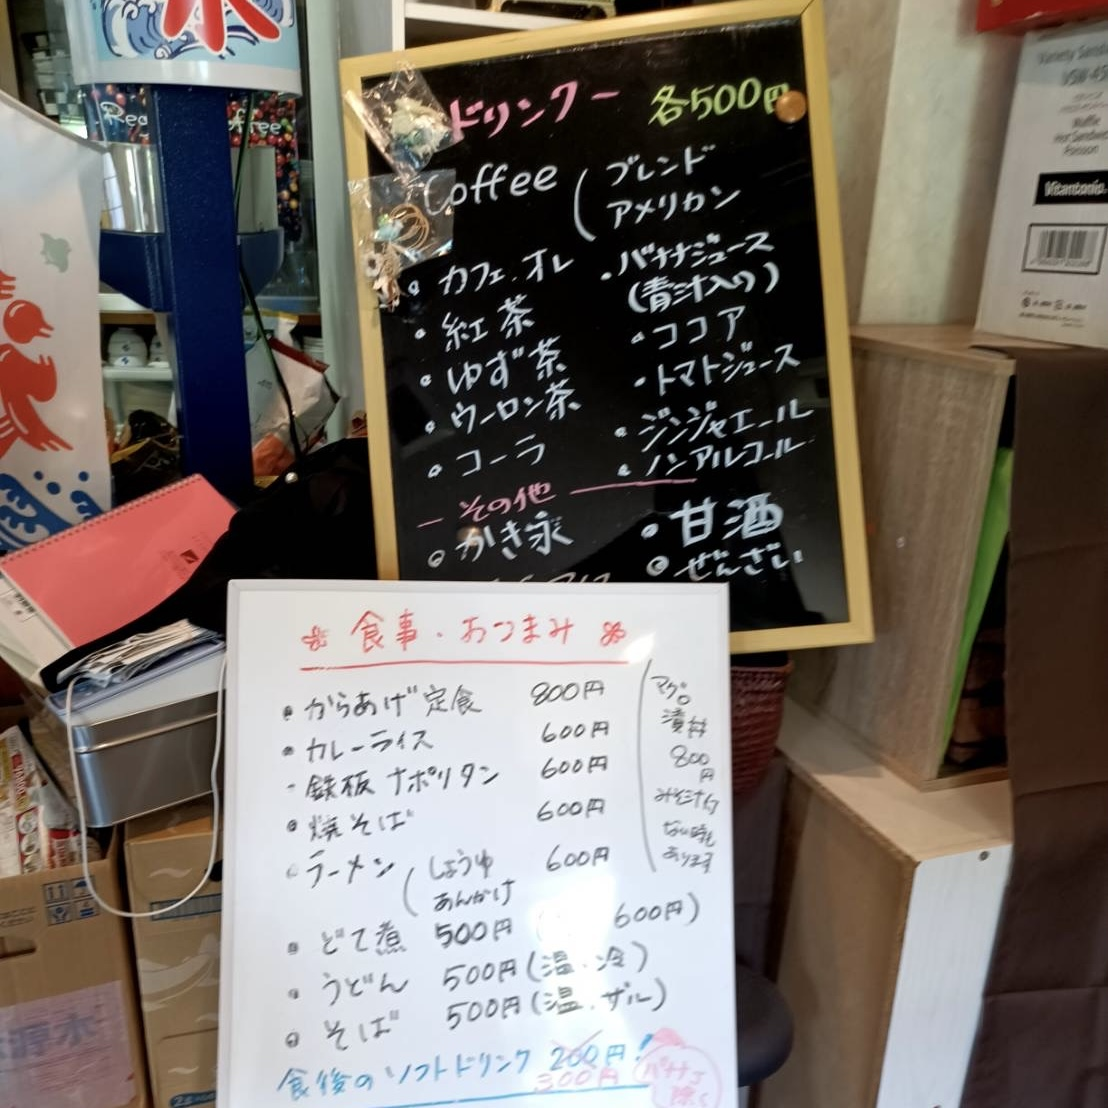 氷
ドリンクー 各500円
Coffee ブレンド
アメリカン
・カフェ・オレ
・紅茶
・ゆず茶
・ウーロン茶
・コーラ
・バナナジュース
(青汁入り)
・ココア
・トマトジュース
・ジンジャエール
・ノンアルコール
ー その他
・かき氷
・甘酒
・ぜんざい
食事・おつまみ
・からあげ定食 800円
・カレーライス 600円
・鉄板ナポリタン 600円
・焼そば 600円
・ラーメン(しょうゆ 600円
あんかけ
・どて煮 500円 ( 600円)
・うどん 500円(温・冷)
・そば 500円(温・ザル)
食後のソフトドリンク 200円!
300円
バナナJ
除く
マグロ
漬丼
800
円
みそ汁付
ない時も
あります
Variety Sand
VSW-45
Waffle
Hot Sandwich
Vitantonio